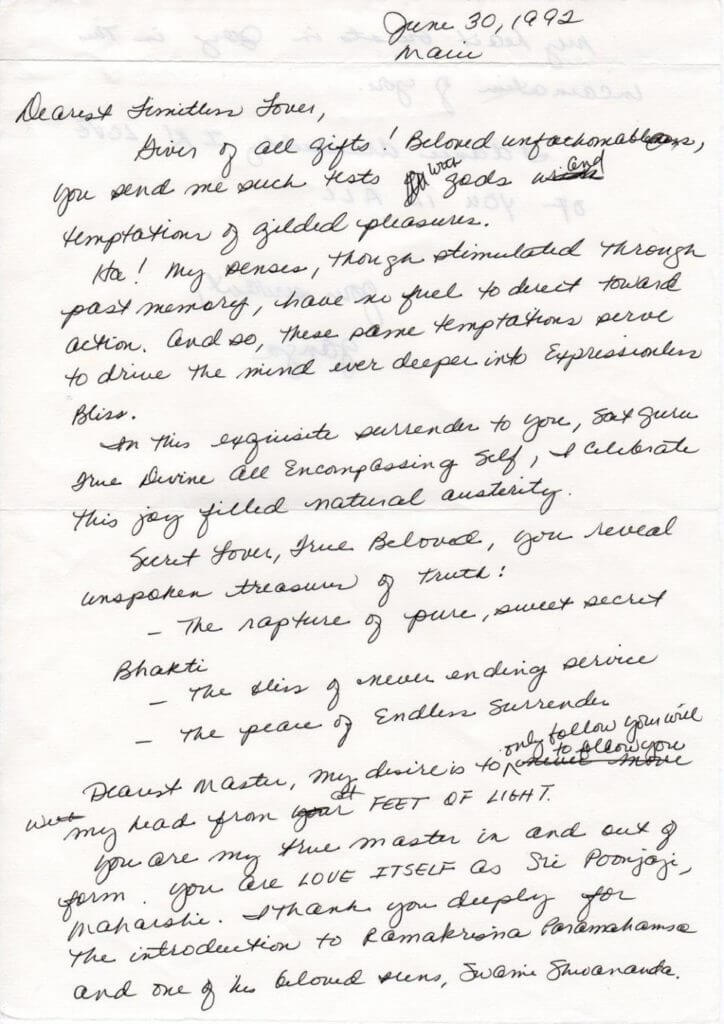 June 30, 1992
Maui
Dearest Limitless Lover,
Giver of all gifts! Beloved unfathomableness,
you send me such tests with gods and
temptations of gilded pleasures.
Ha! My senses, though stimulated through
past memory, have no fuel to direct toward
action. And so, these same temptations serve
to drive the mind ever deeper into Expressionless
Bliss.
In this exquisite surrender to you, Sat Guru
True Divine All Encompassing Self, I celebrate
this joy filled natural austerity.
Secret Lover, True Beloved, you reveal
unspoken treasures of Truth:
- The rapture of pure, sweet secret
Bhakti
- The bliss of never ending service
- The peace of Endless Surrender
Dearest Master, my desire is to only follow your will
with my head at FEET OF LIGHT.
You are my true master in and out of
form. You are LOVE ITSELF as Sri Poonjaji,
Maharshi. I thank you deeply for
the introduction to Ramakrisna Paramahamsa
and one of his beloved suns, Swami Shivananda.